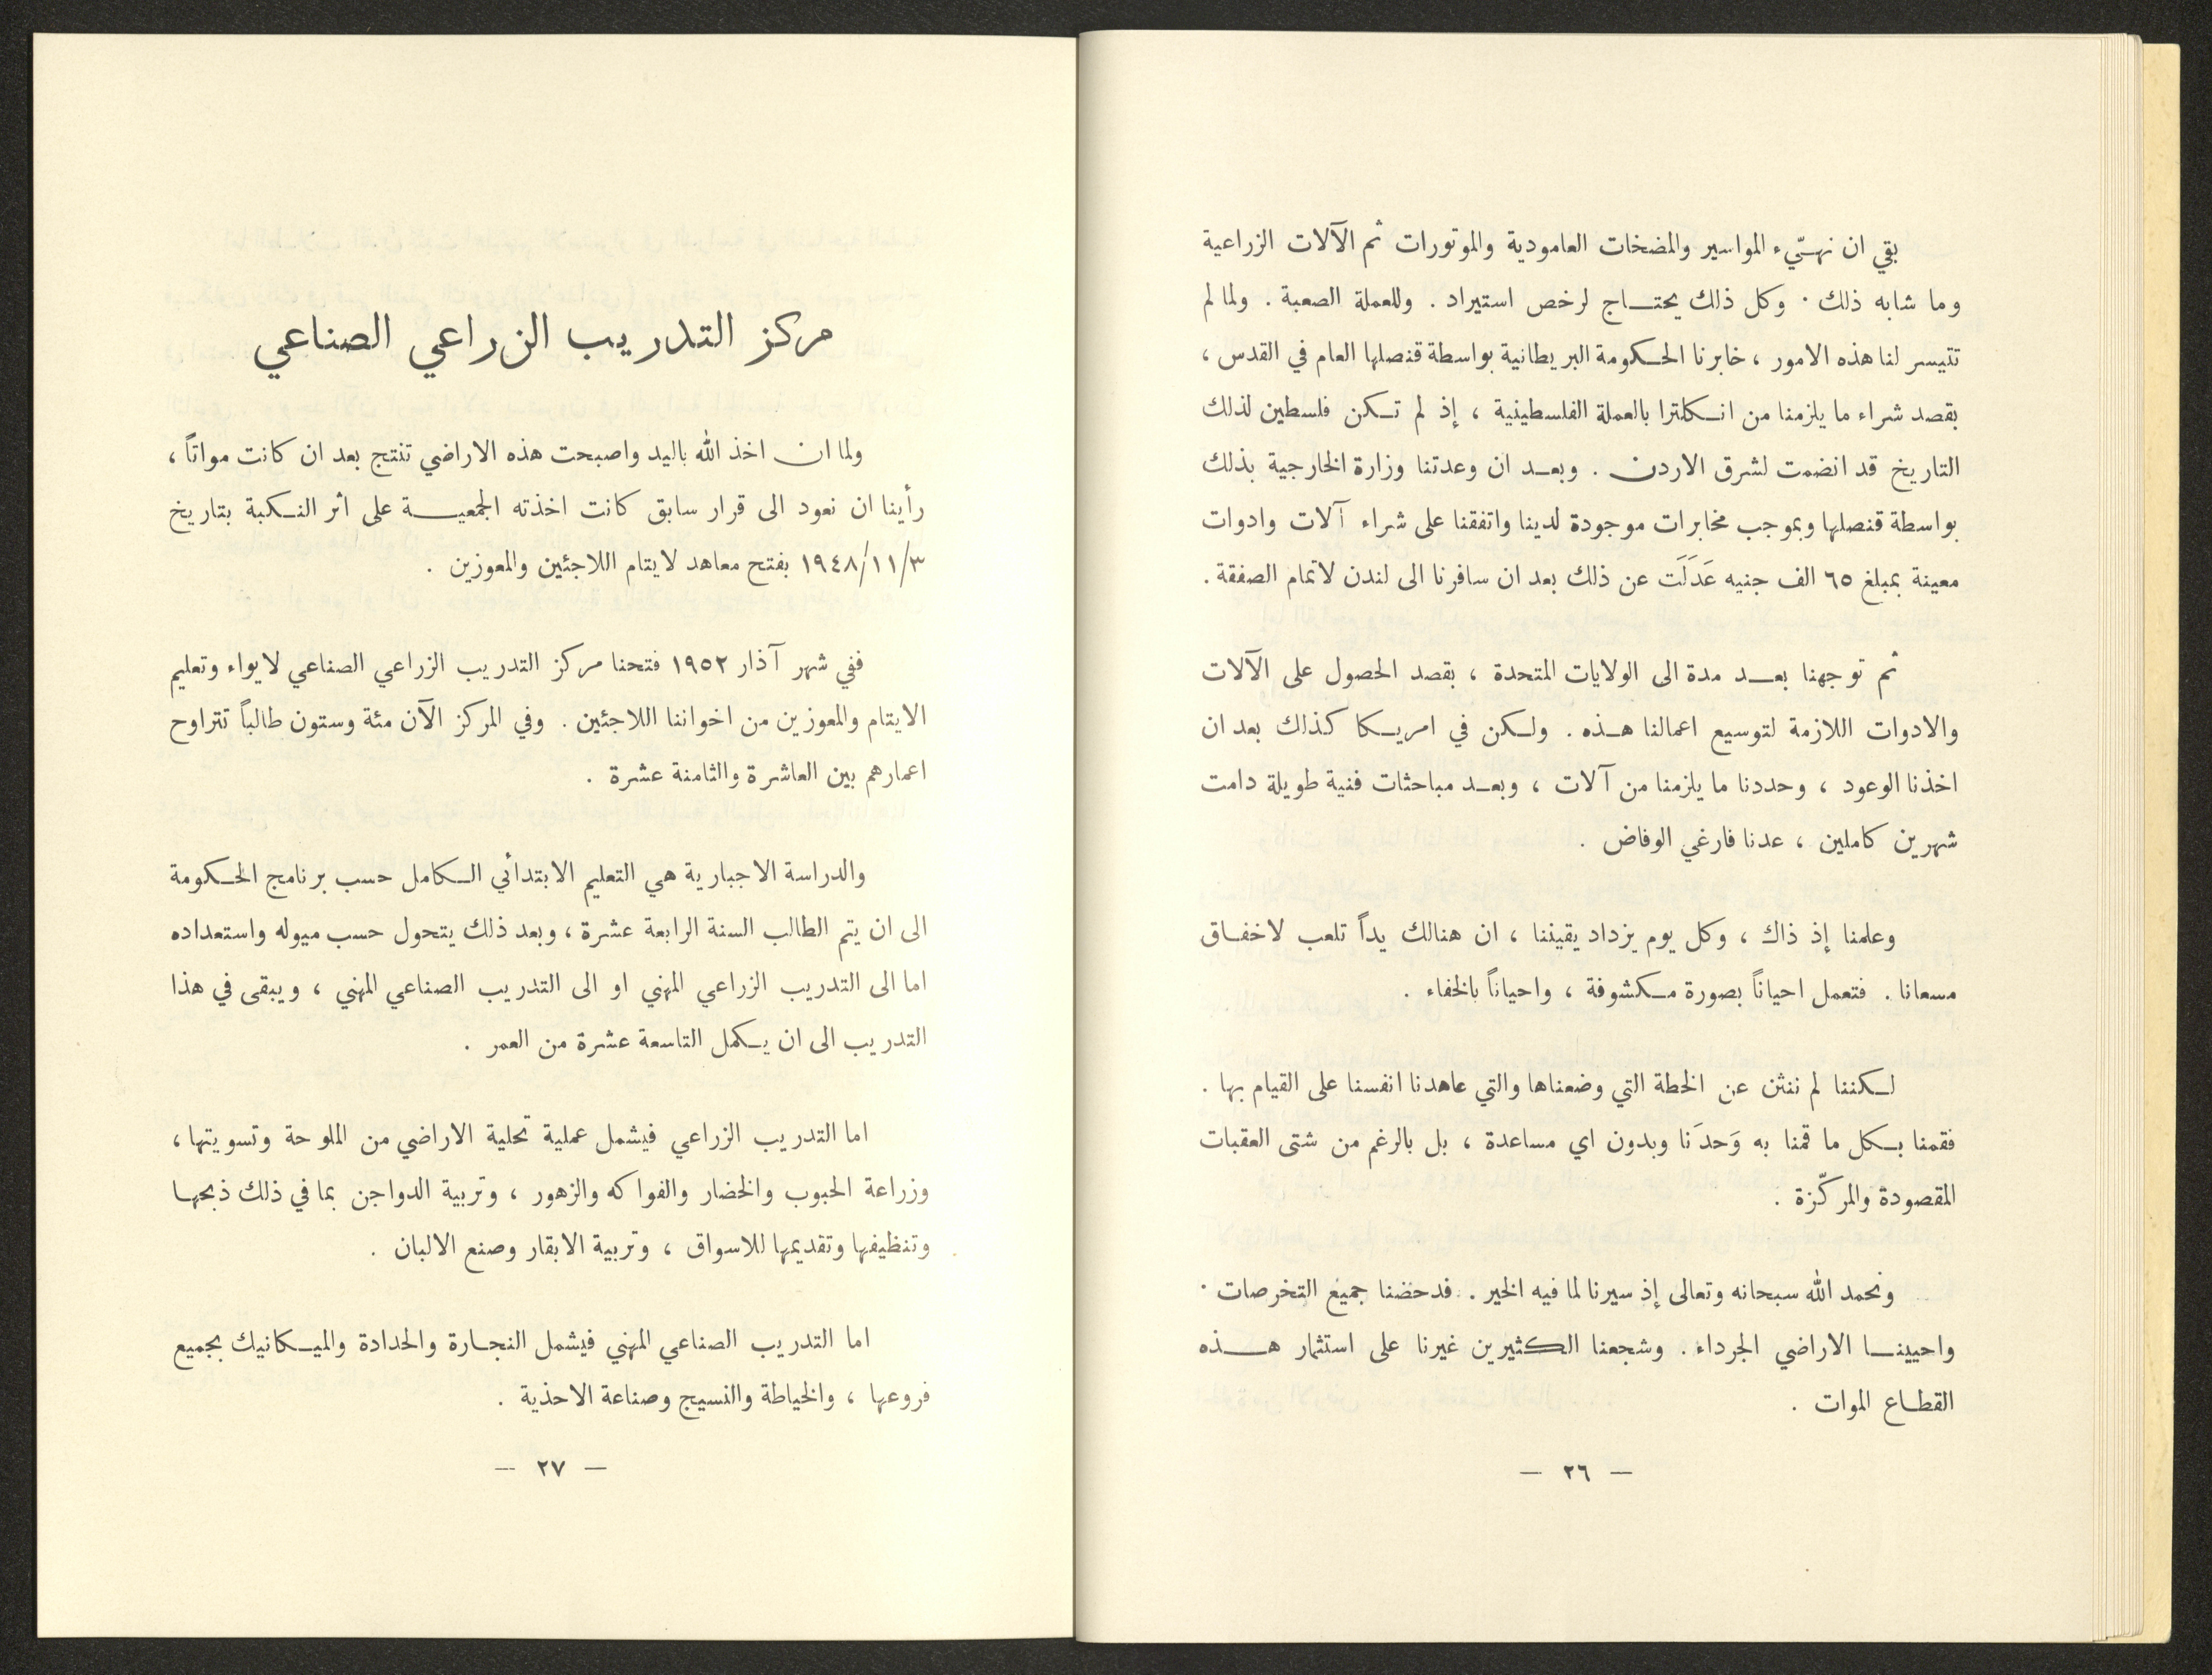 بقي ان نهيّء المواسير والمضخات العامودية والموتورات ثم الآلات الزراعية
وما شابه ذلك . وكل ذلك يحتاج لرخص استيراد . وللعملة الصعبة . ولما لم
تتيسر لنا هذه الامور ، خابرنا الحكومة البريطانية بواسطة قنصلها العام في القدس ،
بقصد شراء ما يلزمنا من انكلترا بالعملة الفلسطينية ، إذ لم تكن فلسطين لذلك
التاريخ قد انضمت لشرق الاردن . وبعد ان وعدتنا وزارة الخارجية بذلك
بواسطة قنصلها وبموجب مخابرات موجودة لدينا واتفقنا على شراء آلات وادوات
معينة بمبلغ ٦٥ الف جنيه عَدَلَت عن ذلك بعد ان سافرنا الى لندن لاتمام الصفقة .
ثم توجهنا بعد مدة الى الولايات المتحدة ، بقصد الحصول على الآلات
والادوات اللازمة لتوسيع اعمالنا هذه . ولكن في امريكا كذلك بعد ان
اخذنا الوعود ، وحددنا ما يلزمنا من آلات ، وبعد مباحثات فنية طويلة دامت
شهرين كاملين ، عدنا فارغي الوفاض .
وعلمنا إذ ذاك ، وكل يوم يزداد يقيننا ، ان هنالك يداً تلعب لاخفاق
مسعانا . فتعمل احياناً بصورة مكشوفة ، واحياناً بالخفاء .
لكننا لم ننثن عن الخطة التي وضعناها والتي عاهدنا انفسنا على القيام بها .
فقمنا بكل ما قمنا به وَحدَنا وبدون اي مساعدة ، بل بالرغم من شتى العقبات
المقصودة والمركّزة .
ونحمد الله سبحانه وتعالى إذ سيرنا لما فيه الخير . فدحضنا جميع التخرصات .
واحيينا الاراضي الجرداء . وشجعنا الكثيرين غيرنا على استثمار هذه
القطاع الموات .
— ٢٦ —
مركز التدريب الزراعي الصناعي
ولما ان اخذ الله باليد واصبحت هذه الاراضي تنتج بعد ان كانت مواتاً ،
رأينا ان نعود الى قرار سابق كانت اخذته الجمعية على اثر النكبة بتاريخ
١٩٤٨/١١/٣ بفتح معاهد لايتام اللاجئين والمعوزين .
ففي شهر آذار ١٩٥٢ فتحنا مركز التدريب الزراعي الصناعي لايواء وتعليم
الايتام والمعوزين من اخواننا اللاجئين . وفي المركز الآن مئة وستون طالباً تتراوح
اعمارهم بين العاشرة والثامنة عشرة .
والدراسة الاجبارية هي التعليم الابتدائي الكامل حسب برنامج الحكومة
الى ان يتم الطالب السنة الرابعة عشرة ، وبعد ذلك يتحول حسب ميوله واستعداده
اما الى التدريب الزراعي المهني او الى التدريب الصناعي المهني ، ويبقى في هذا
التدريب الى ان يكمل التاسعة عشرة من العمر .
اما التدريب الزراعي فيشمل عملية تحلية الاراضي من الملوحة وتسويتها ،
وزراعة الحبوب والخضار والفواكه والزهور ، وتربية الدواجن بما في ذلك ذبحها
وتنظيفها وتقديمها للاسواق ، وتربية الابقار وصنع الالبان .
اما التدريب الصناعي المهني فيشمل النجارة والحدادة والميكانيك بجميع
فروعها ، والخياطة والنسيج وصناعة الاحذية .
— ٢٧ —